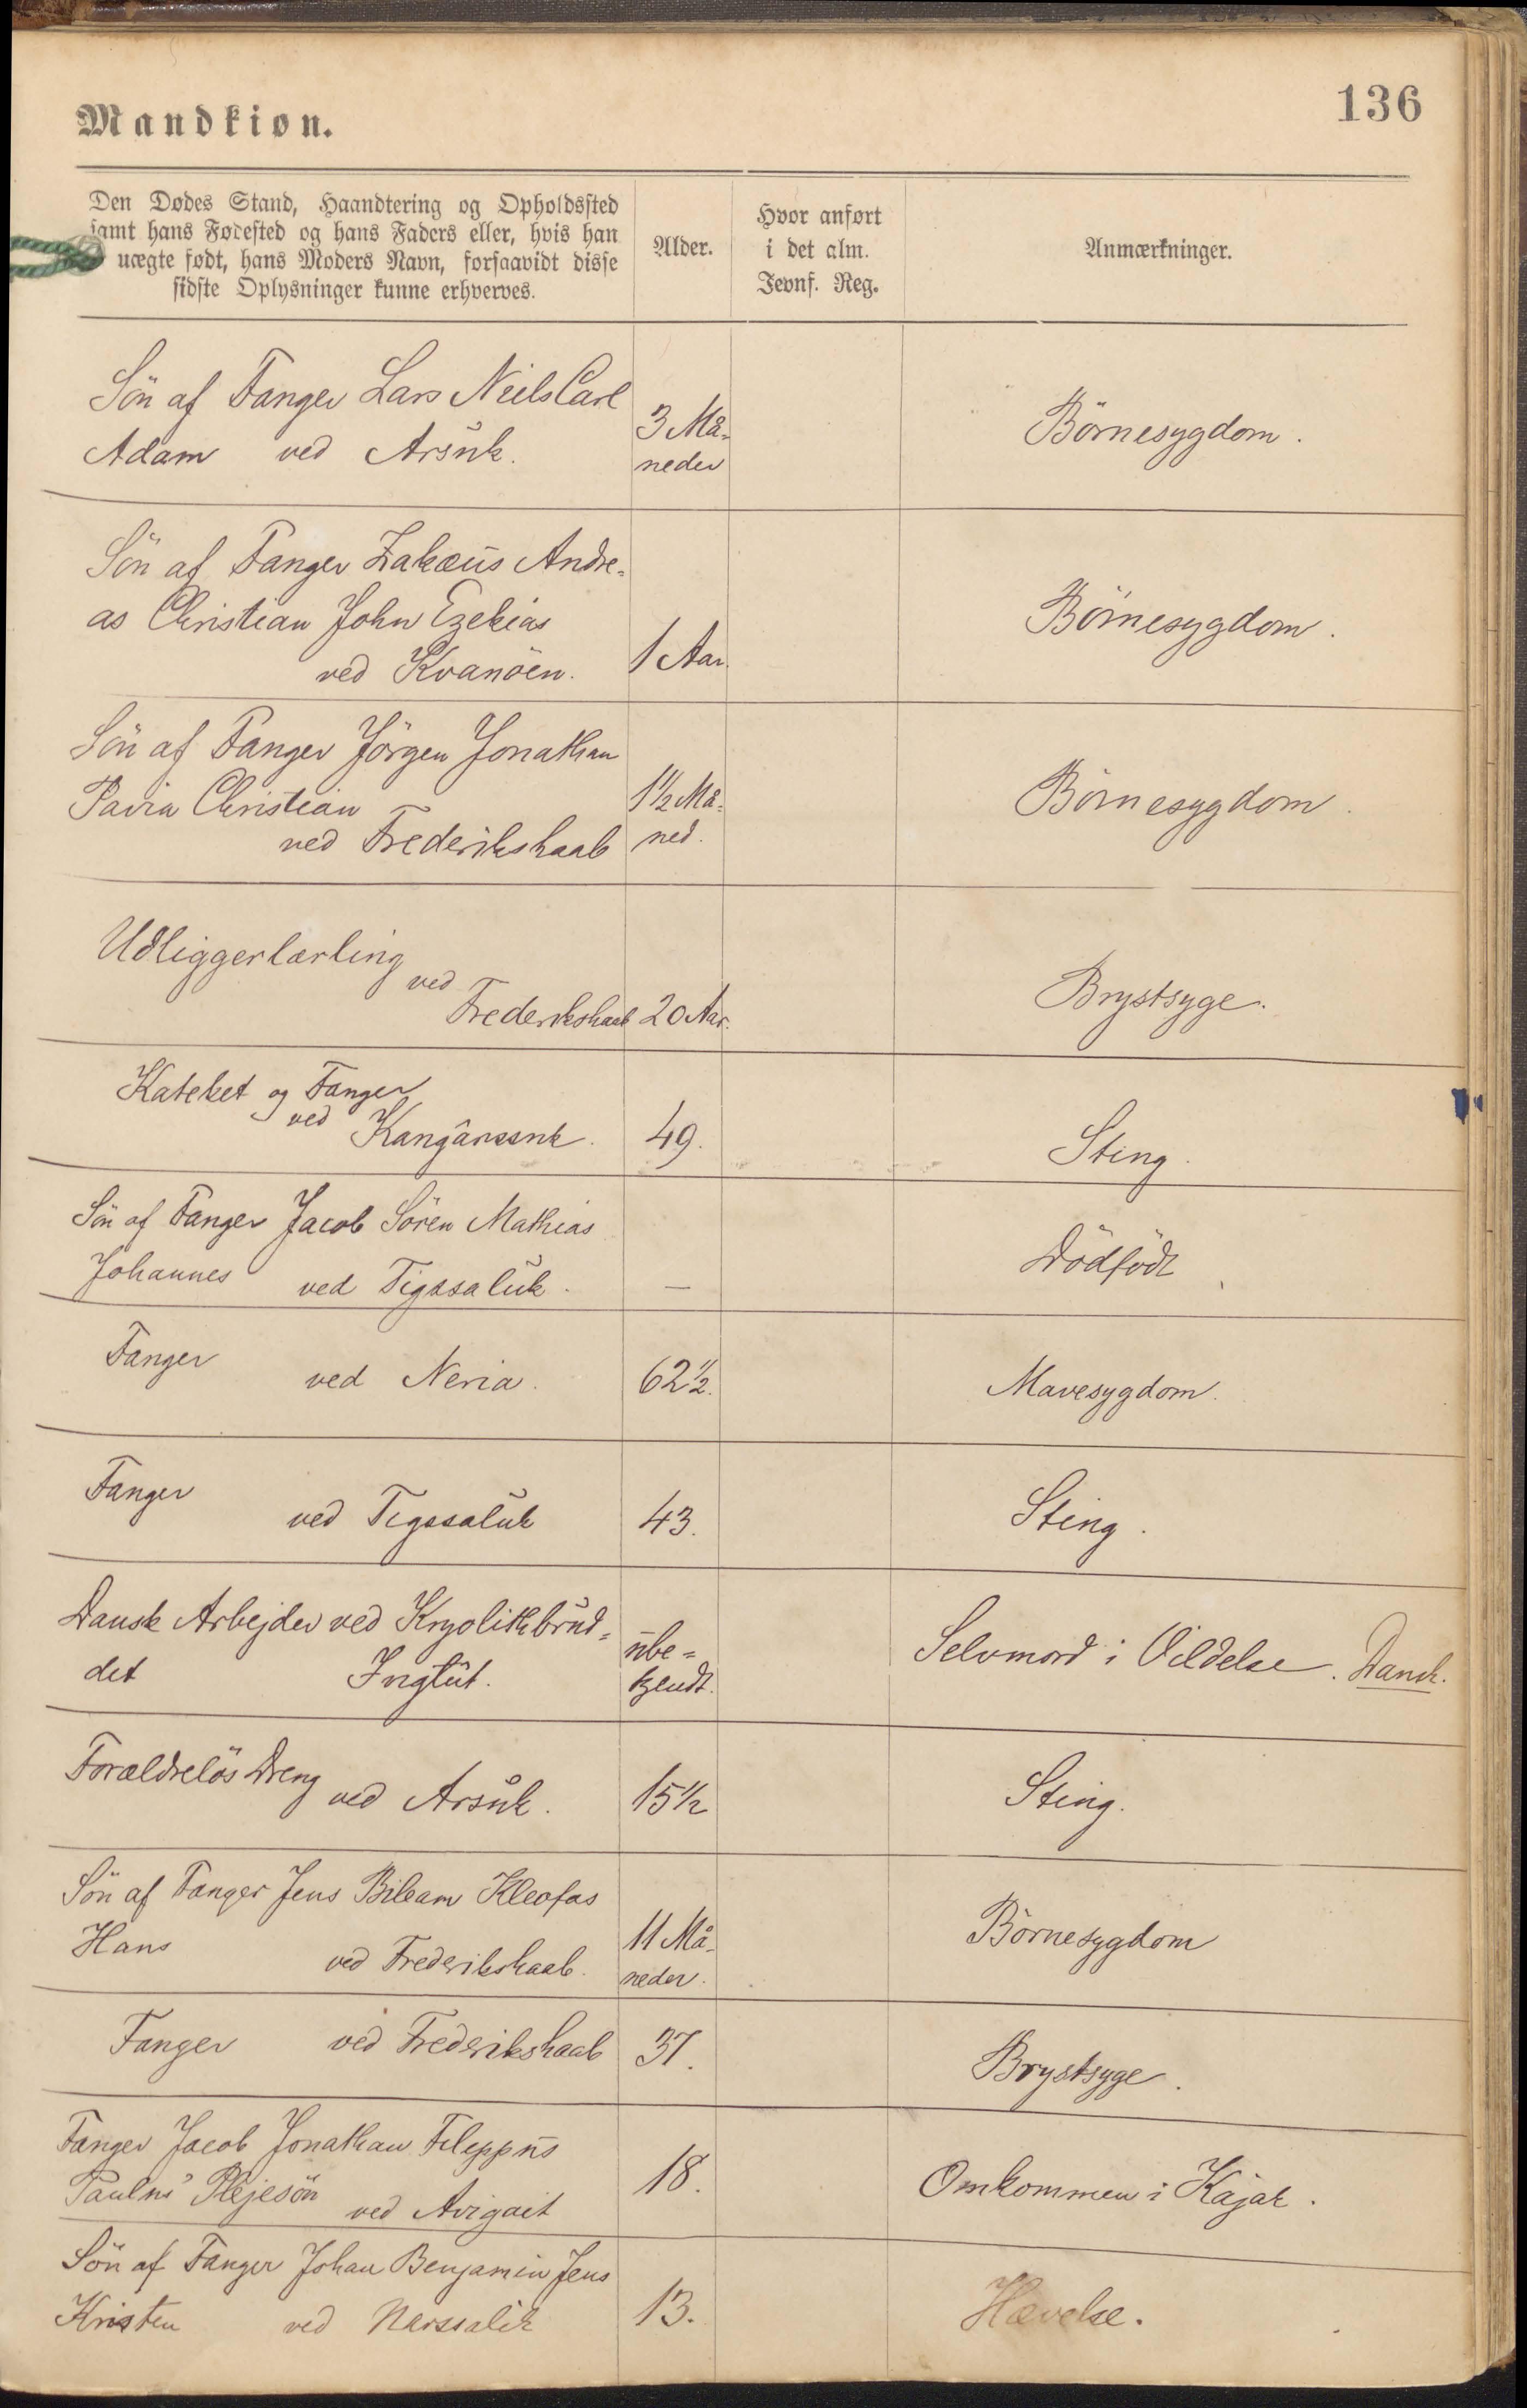 136
Mandkiøn.
Den Dødes Stand, Haandtering og Opholdssted
samt hans Fødested og hans Faders eller, hvis han
uægte født, hans Moders Navn, forsaavidt disse
sidste Oplysninger kunne erhverves.
Alder.
Hvor anført
i det alm.
Jevnf. Reg.
Anmærkninger.
Sön af Fanger Lars Niels Carl
Adam ved Arsuk.
3 Må-
neder
Börnesygdom.
Sön af Fanger Zakæus Andre-
as Christian John Ezekias
ved Kvanöen.
1 Aar.
Börnesygdom.
Sön af Fanger Jörgen Jonathan
Pavia Christian
ved Frederikshaab
1½ Må-
ned.
Börnesygdom.
Udliggerlærling
ved
Frederikshaab
20 Aar.
Brystsyge.
Kateket og Fanger
ved Kangârssuk.
49.
Sting.
Sön af Fanger Jacob Sören Mathias
Johannes ved Tigssaluk.
—
Dödfödt
Fanger
ved Neria.
62½.
Mavesygdom.
Fanger
ved Tigssaluk
43.
Sting.
Dansk Arbejder ved Kryolithbrud-
det Ivigtut.
ube-
kjendt.
Selvmord i Vildelse. Dansk.
Forældrelös Dreng
ved Arsuk.
15½
Sting.
Sön af Fanger Jens Bileam Kleofas
Hans
ved Frederikshaab.
11 Må-
neder.
Börnesygdom
Fanger ved Frederikshaab
37.
Brystsyge.
Fanger Jacob Jonathan Filippus
Paulus' Plejesön
ved Avigait
18.
Omkommen i Kajak.
Sön af Fanger Johan Benjamin Jens
Kristen ved Narssalik
13.
Hævelse.